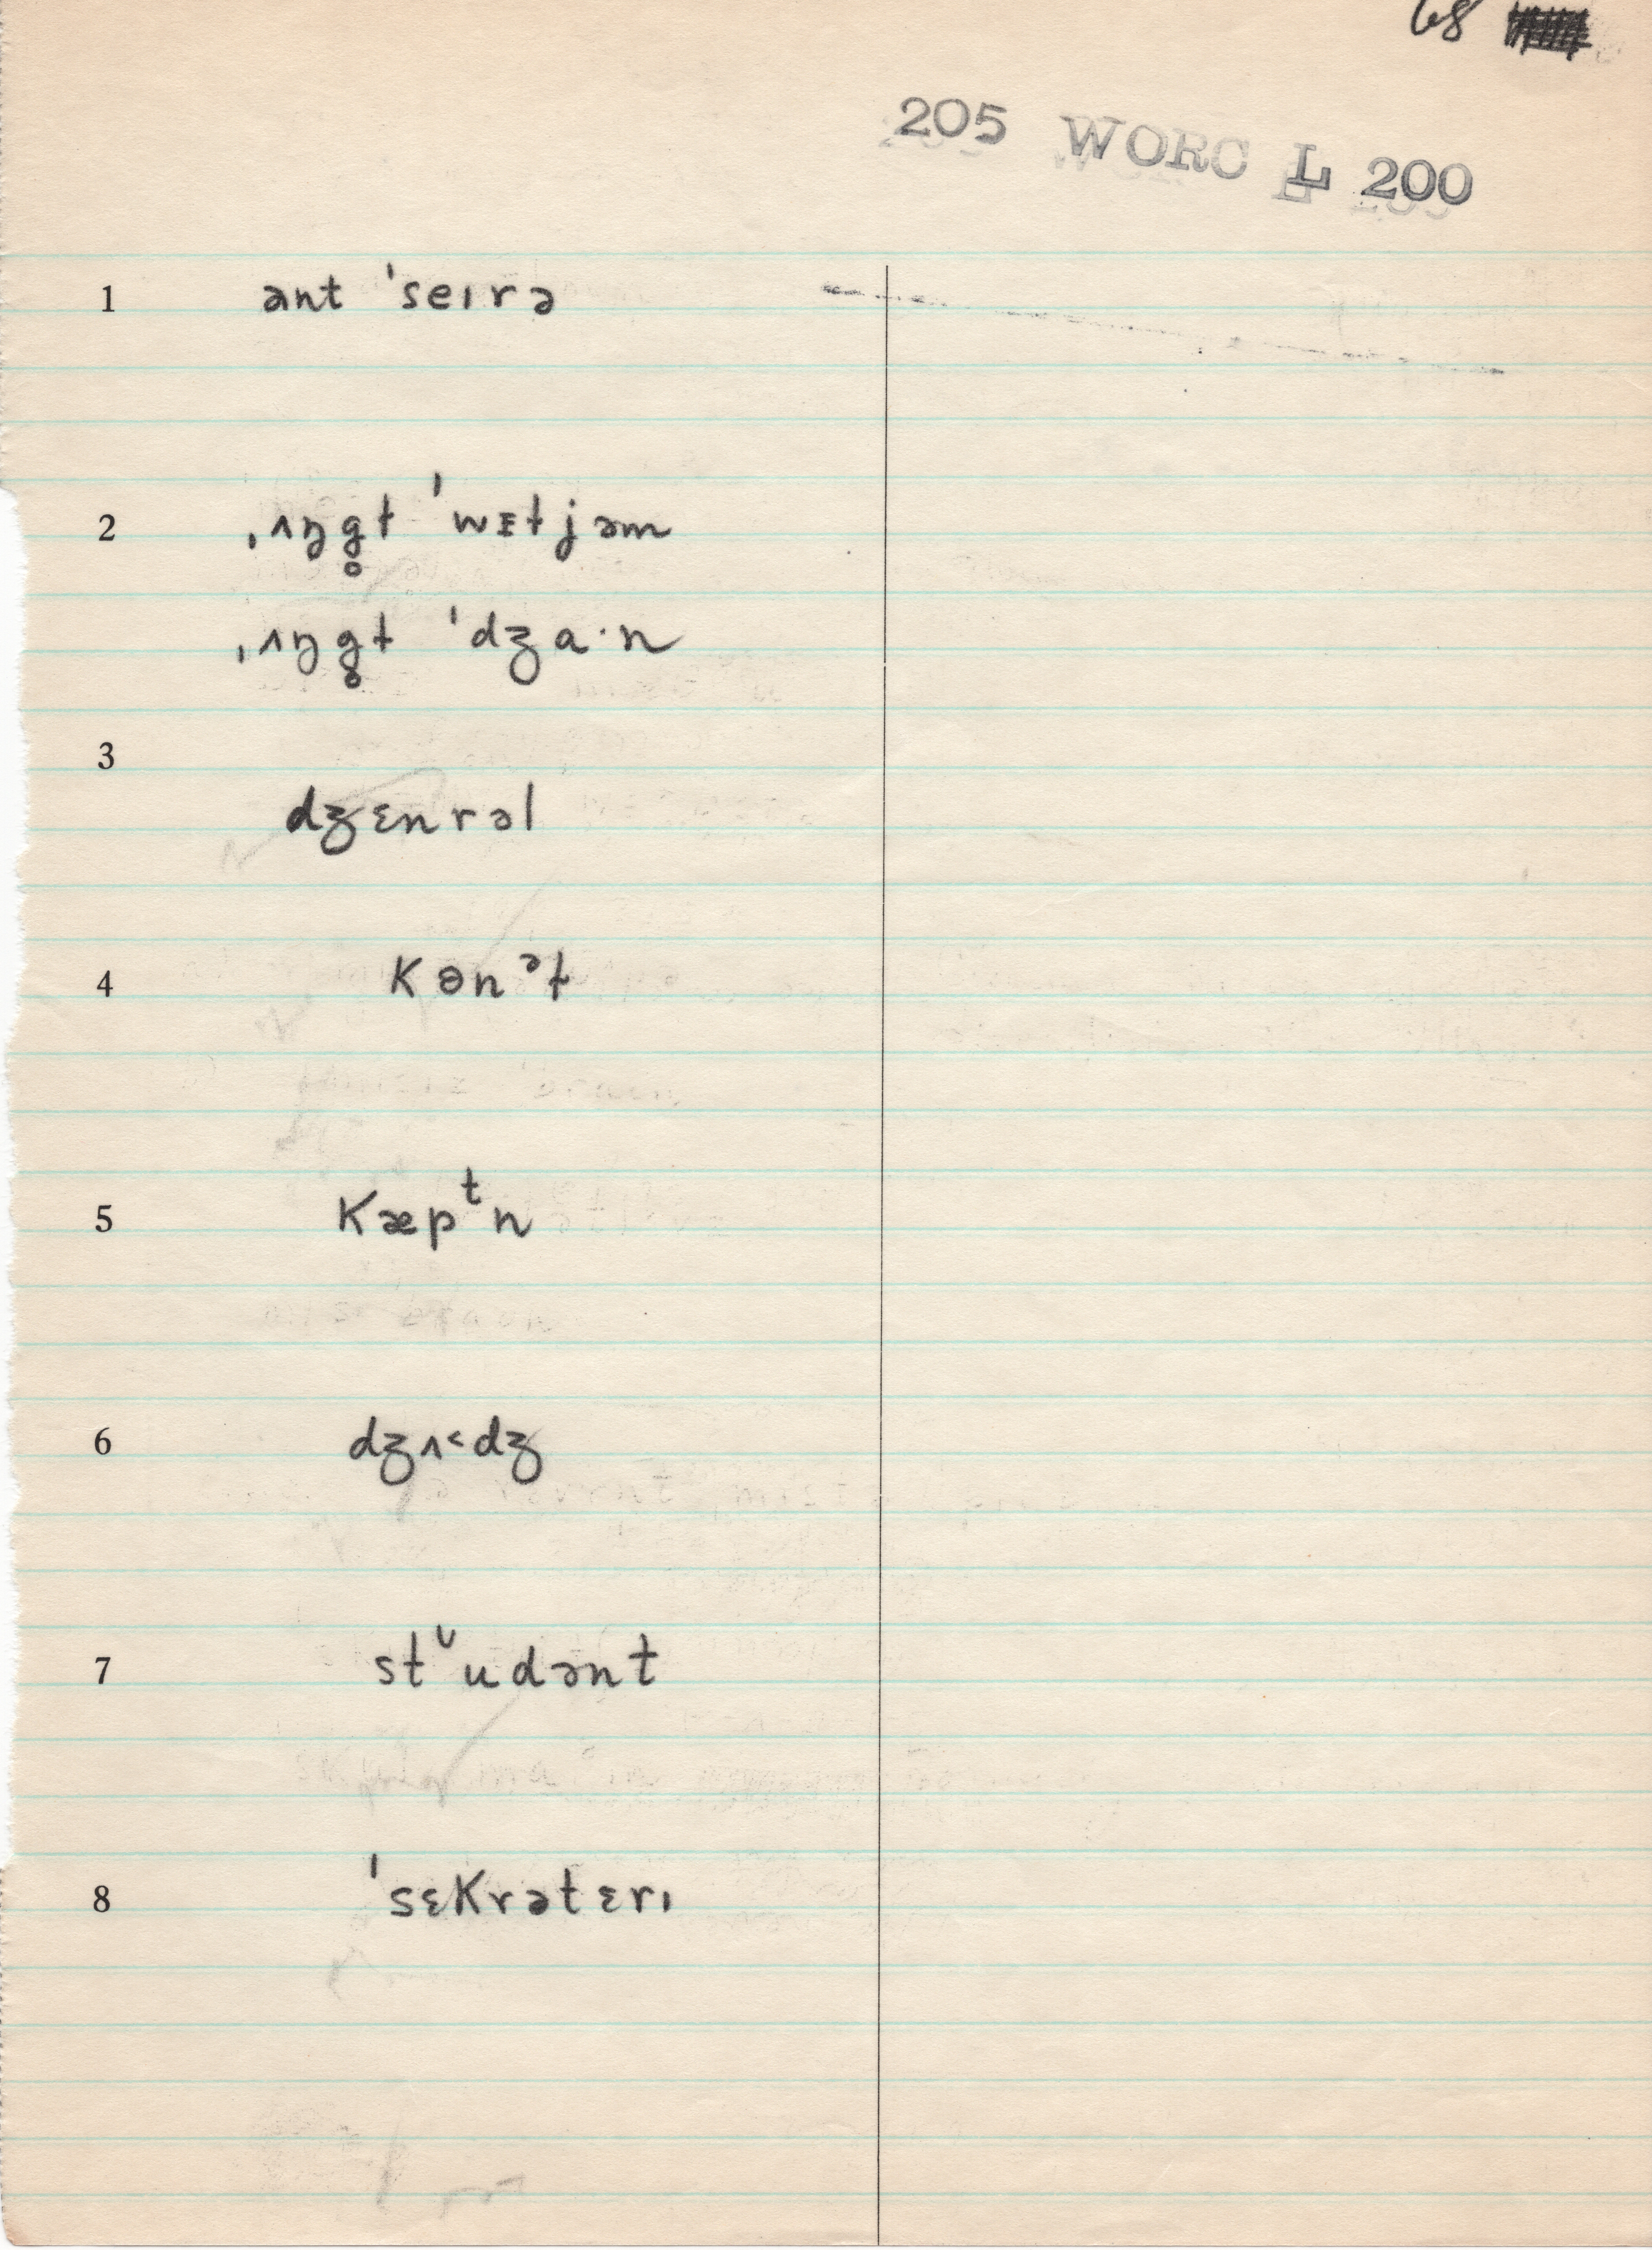 68
205 WORC L 200
1 ant ˈseɪrə
2 ˌʌŋg̥ɫ ˈwɪɫjəm
ˌʌŋg̥ɫ ˈdʒɑ·n
3
dʒɛnrəl
4 kɵnᵊɫ
5 kæpᵗn
6 dʒʌ˂dʒ
7 stᶸudənt
8 ˈsɛkrətɛrɪ